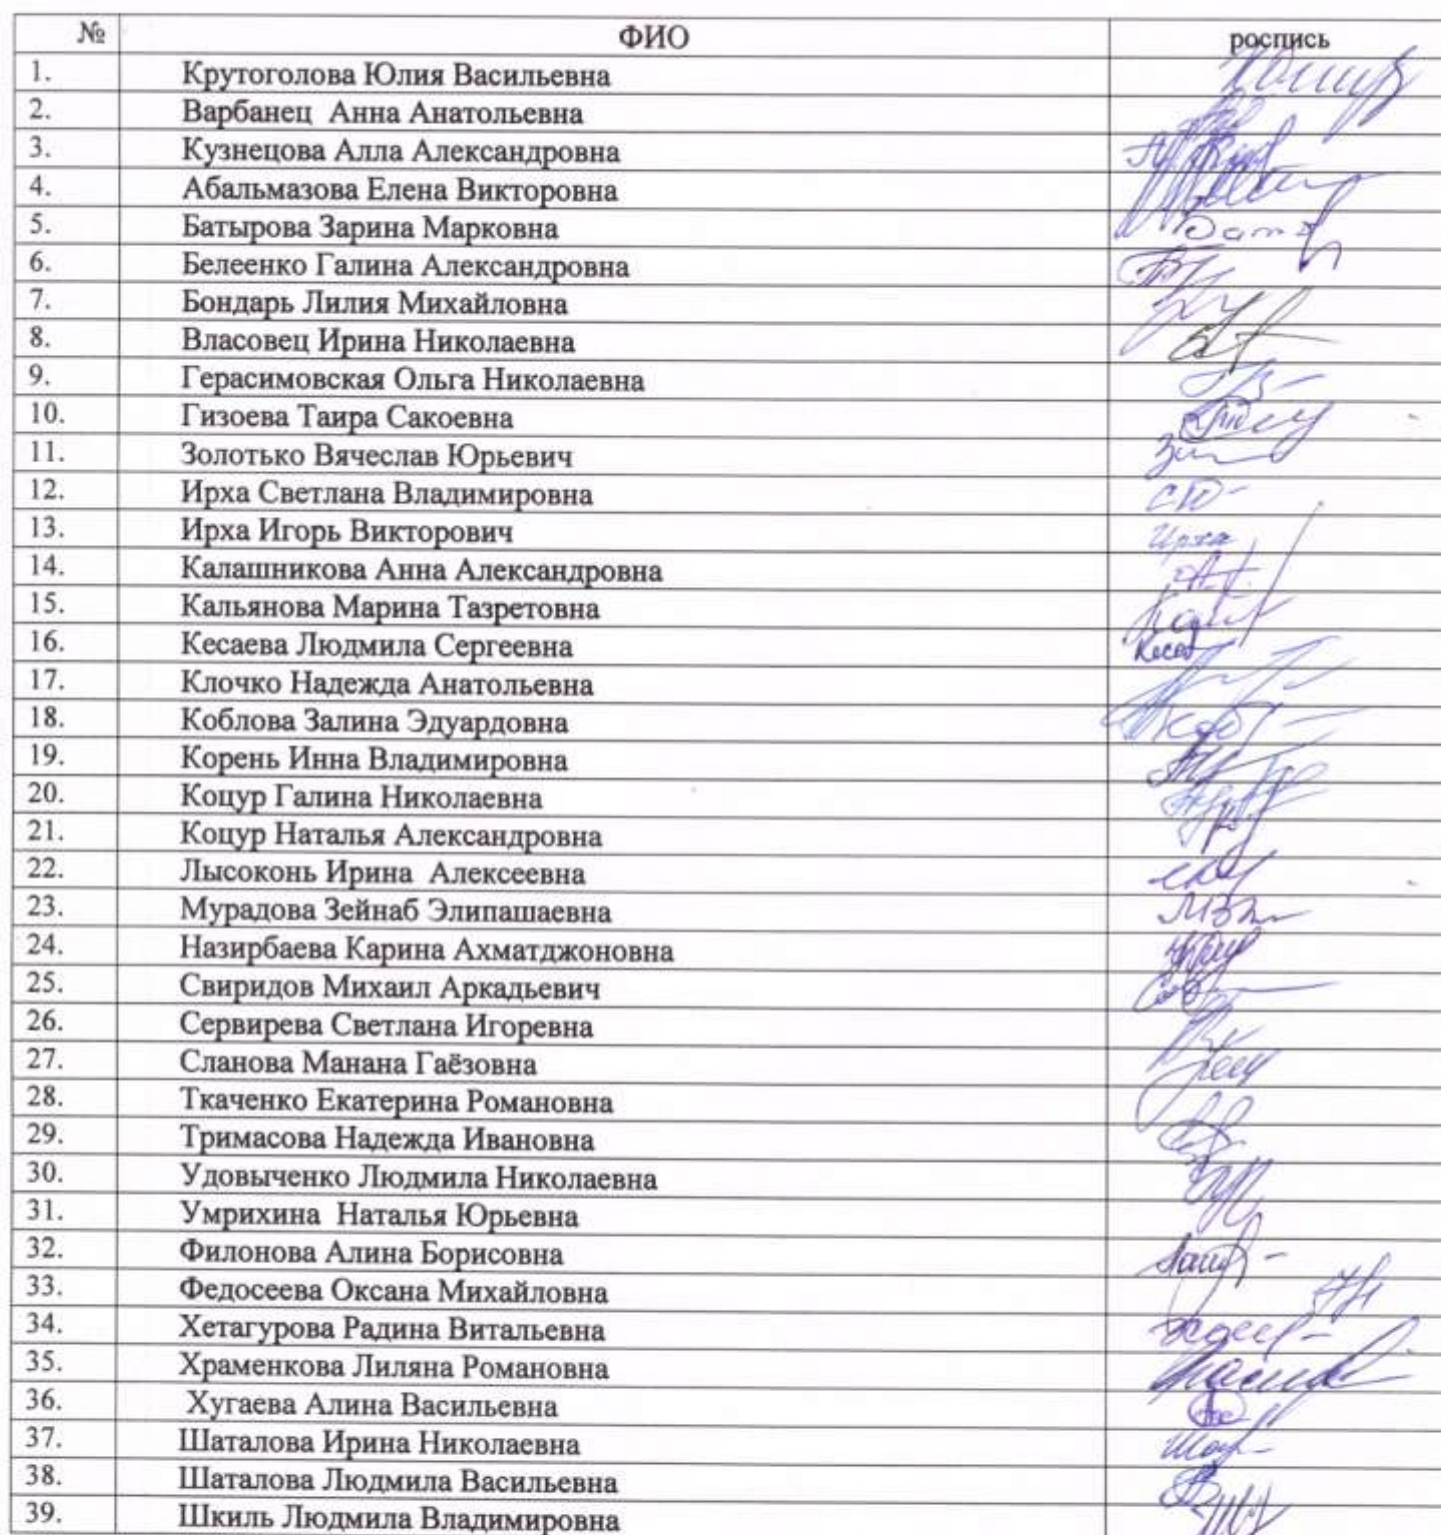 № ФИО роспись
1. Крутоголова Юлия Васильевна
2. Варбанец Анна Анатольевна
3. Кузнецова Алла Александровна
4. Абальмазова Елена Викторовна
5. Батырова Зарина Марковна
6. Белеенко Галина Александровна
7. Бондарь Лилия Михайловна
8. Власовец Ирина Николаевна
9. Герасимовская Ольга Николаевна
10. Гизоева Таира Сакоевна
11. Золотько Вячеслав Юрьевич
12. Ирха Светлана Владимировна
13. Ирха Игорь Викторович Ирха
14. Калашникова Анна Александровна
15. Кальянова Марина Тазретовна
16. Кесаева Людмила Сергеевна
17. Клочко Надежда Анатольевна
18. Коблова Залина Эдуардовна
19. Корень Инна Владимировна
20. Коцур Галина Николаевна
21. Коцур Наталья Александровна
22. Лысоконь Ирина Алексеевна
23. Мурадова Зейнаб Элипашаевна
24. Назирбаева Карина Ахматджоновна
25. Свиридов Михаил Аркадьевич
26. Сервирева Светлана Игоревна
27. Сланова Манана Гаёзовна
28. Ткаченко Екатерина Романовна
29. Тримасова Надежда Ивановна
30. Удовыченко Людмила Николаевна
31. Умрихина Наталья Юрьевна
32. Филонова Алина Борисовна
33. Федосеева Оксана Михайловна
34. Хетагурова Радина Витальевна
35. Храменкова Лиляна Романовна
36. Хугаева Алина Васильевна
37. Шаталова Ирина Николаевна
38. Шаталова Людмила Васильевна
39. Шкиль Людмила Владимировна